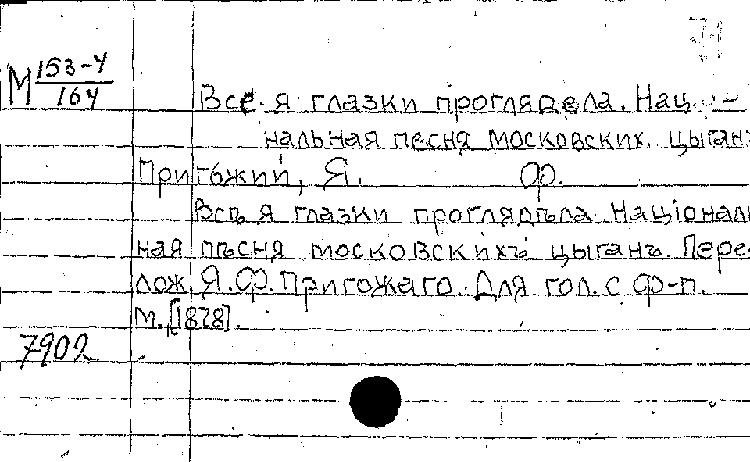 М 153-4/164
Все я глазки проглядела. Нац
нальная песня московских цыган
Пригожий, Я. Ф.
Всѣ я глазки проглядѣла. Націонал
ная пѣсня московскихъ цыганъ. Пере
лож. Я. Ф. Пригожаго. Для гол. с ф-п.
М., [1878].
7902